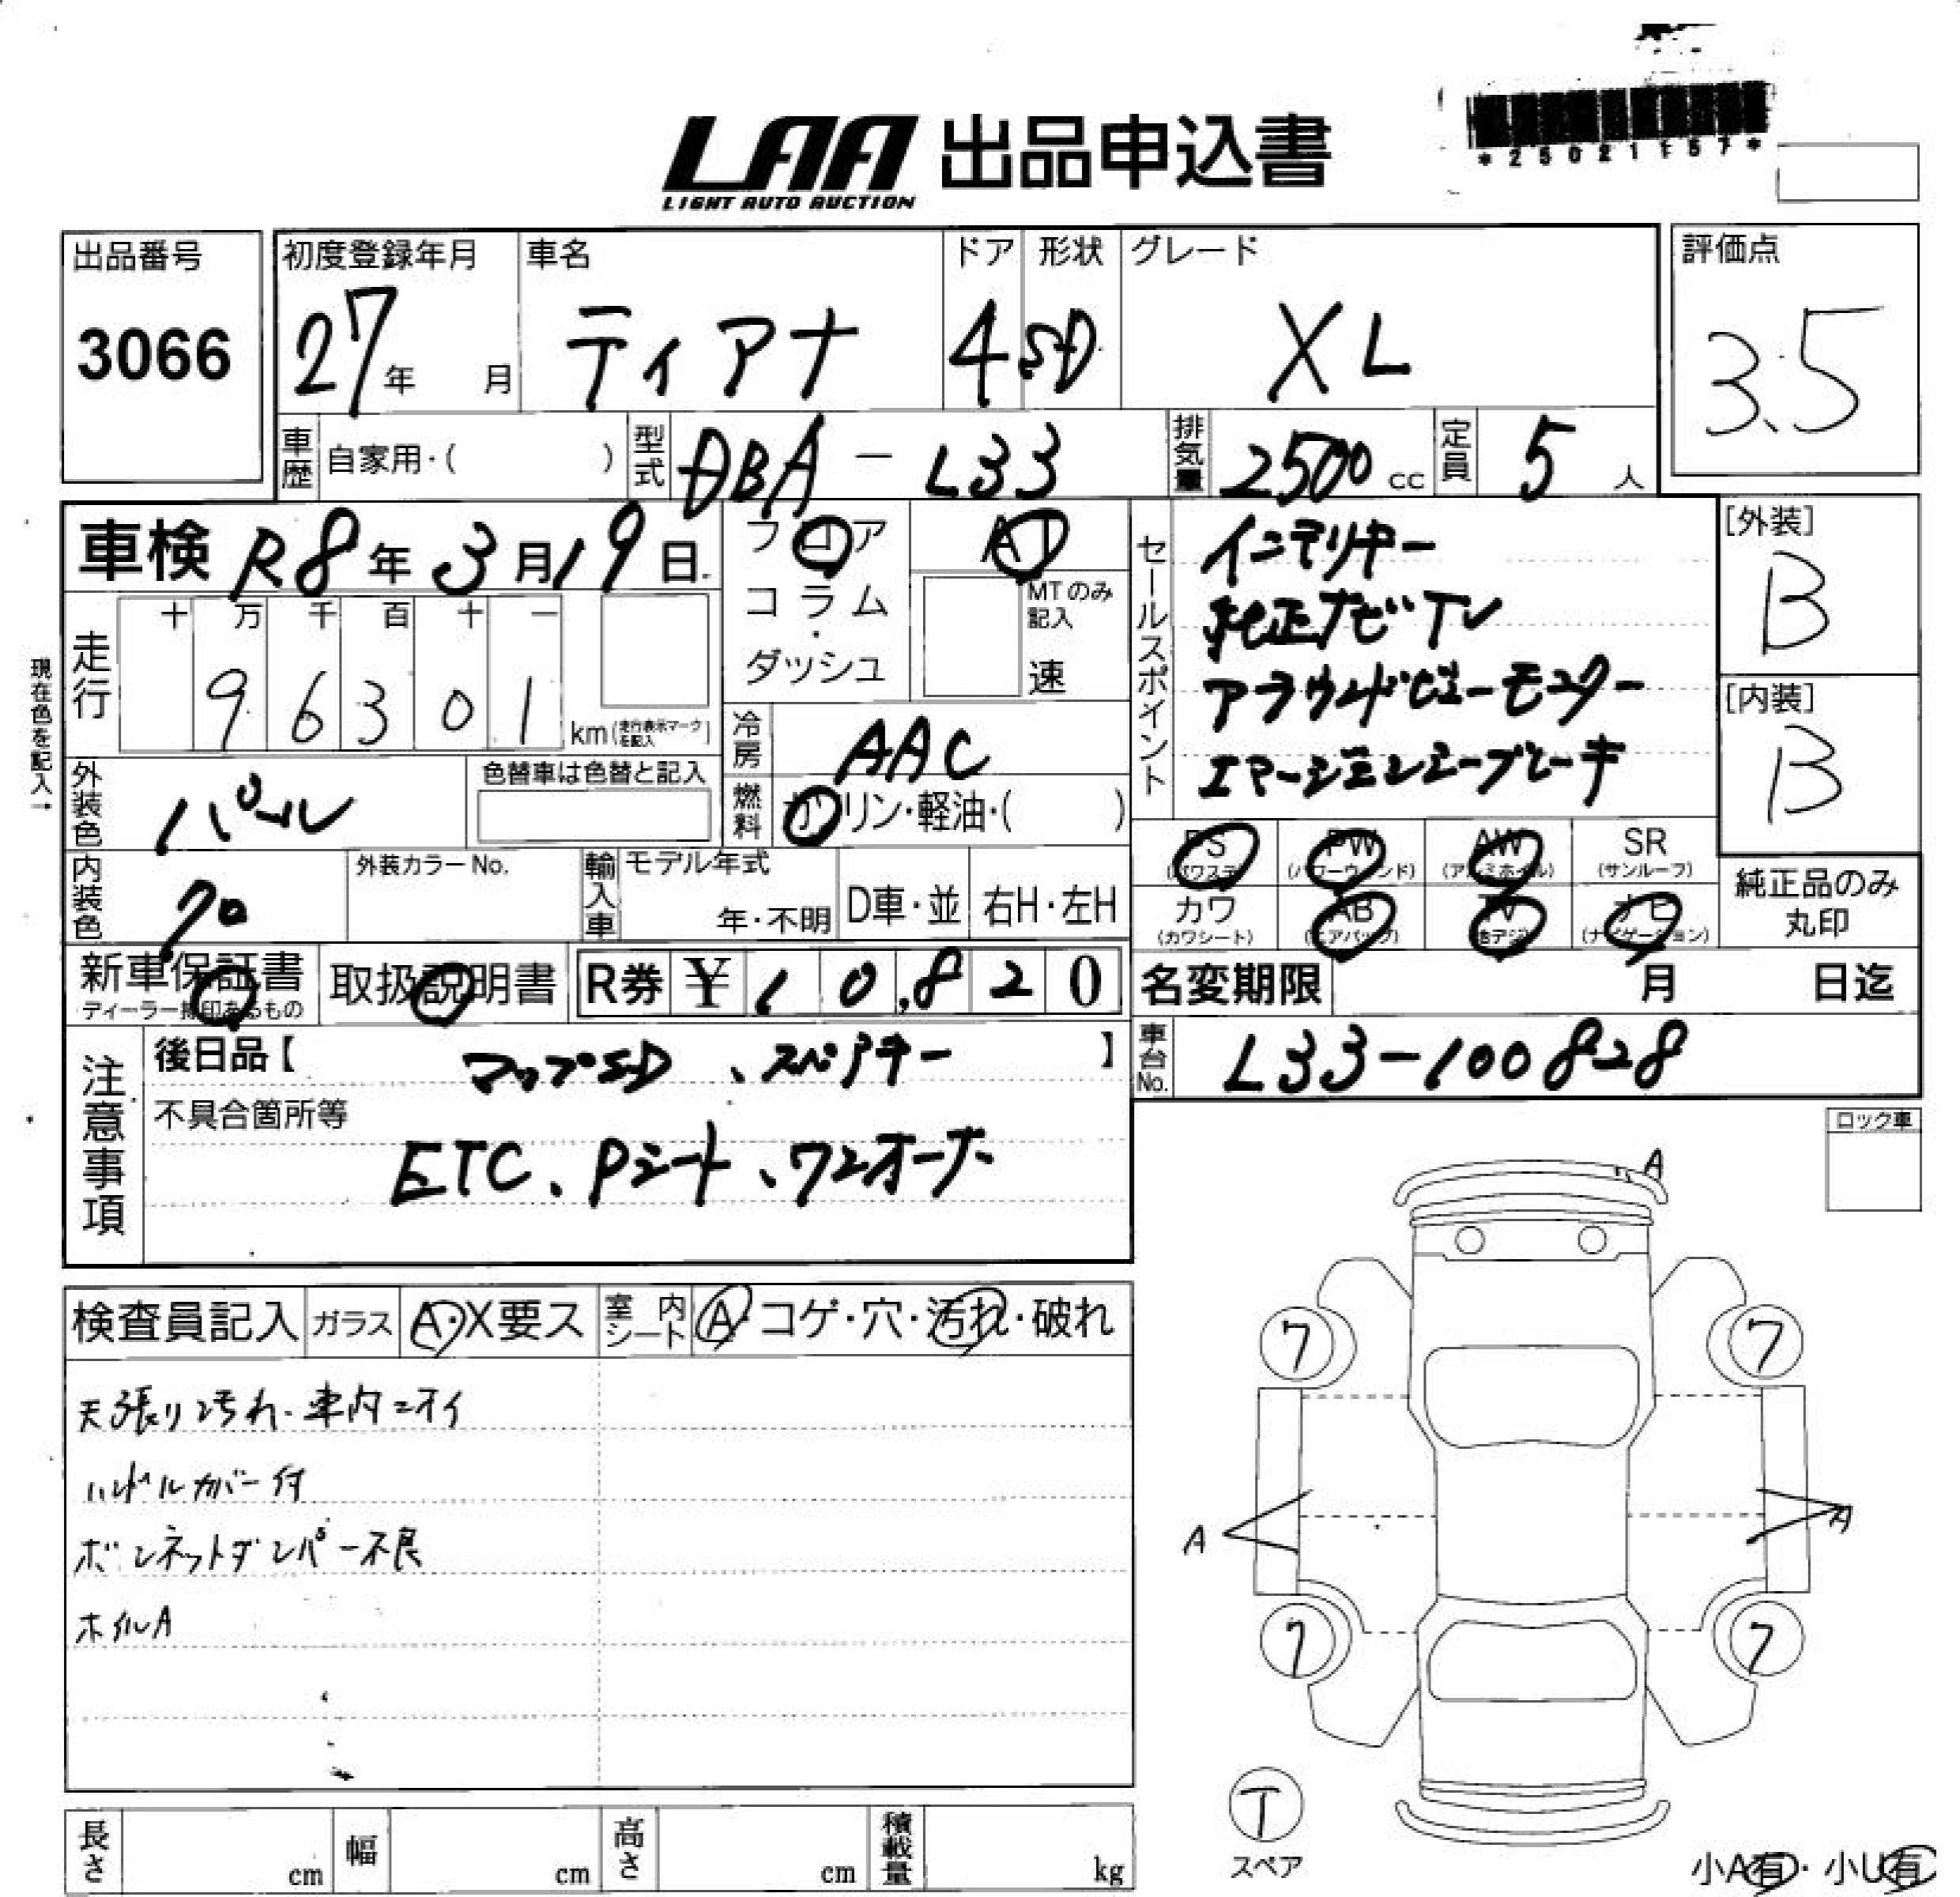 LAA 出品申込書
LIGHT AUTO AUCTION
*25021157*
出品番号
3066
初度登録年月
27年 月
車名
ティアナ
ドア
4
形状
SD
グレード
XL
評価点
3.5
車歴 自家用・( )
型式 DBA-L33
排気量 2500cc
定員 5人
車検 R8年3月19日
フロア
コラム
・
ダッシュ
AT
MTのみ記入
速
セールスポイント
インテリキー
純正ナビTV
アラウンドビューモニター
エマージェンシーブレーキ
[外装]
B
[内装]
B
現在色を記入→
走行
十 万 千 百 十 一
9 6 3 0 1 km(走行表示マークを記入)
冷房 AAC
燃料 ガソリン・軽油・( )
外装色 パール
色替車は色替と記入
内装色 クロ
外装カラーNo.
輸入車
モデル年式
年・不明
D車・並
右H・左H
PS (パワステ)
PW (パワーウィンド)
AW (アルミホイル)
SR (サンルーフ)
カワ (カワシート)
AB (エアバッグ)
TV (地デジ)
ナビ (ナビゲーション)
純正品のみ
丸印
新車保証書
ディーラー捺印あるもの
取扱説明書
R券 ¥10,820
名変期限 月 日迄
注意事項
後日品【 マップSD、スペアキー 】
車台No. L33-100828
不具合箇所等
ETC、Pシート、ワンオーナー
ロック車
検査員記入
ガラス A・X要ス
室内シート A・コゲ・穴・汚れ・破れ
天張り汚れ・車内ニオイ
ハンドルカバー付
ボンネットダンパー不良
ホイルA
A
7
7
A
A
7
7
T
スペア
小A有・小U有
長さ cm
幅 cm
高さ cm
積載量 kg